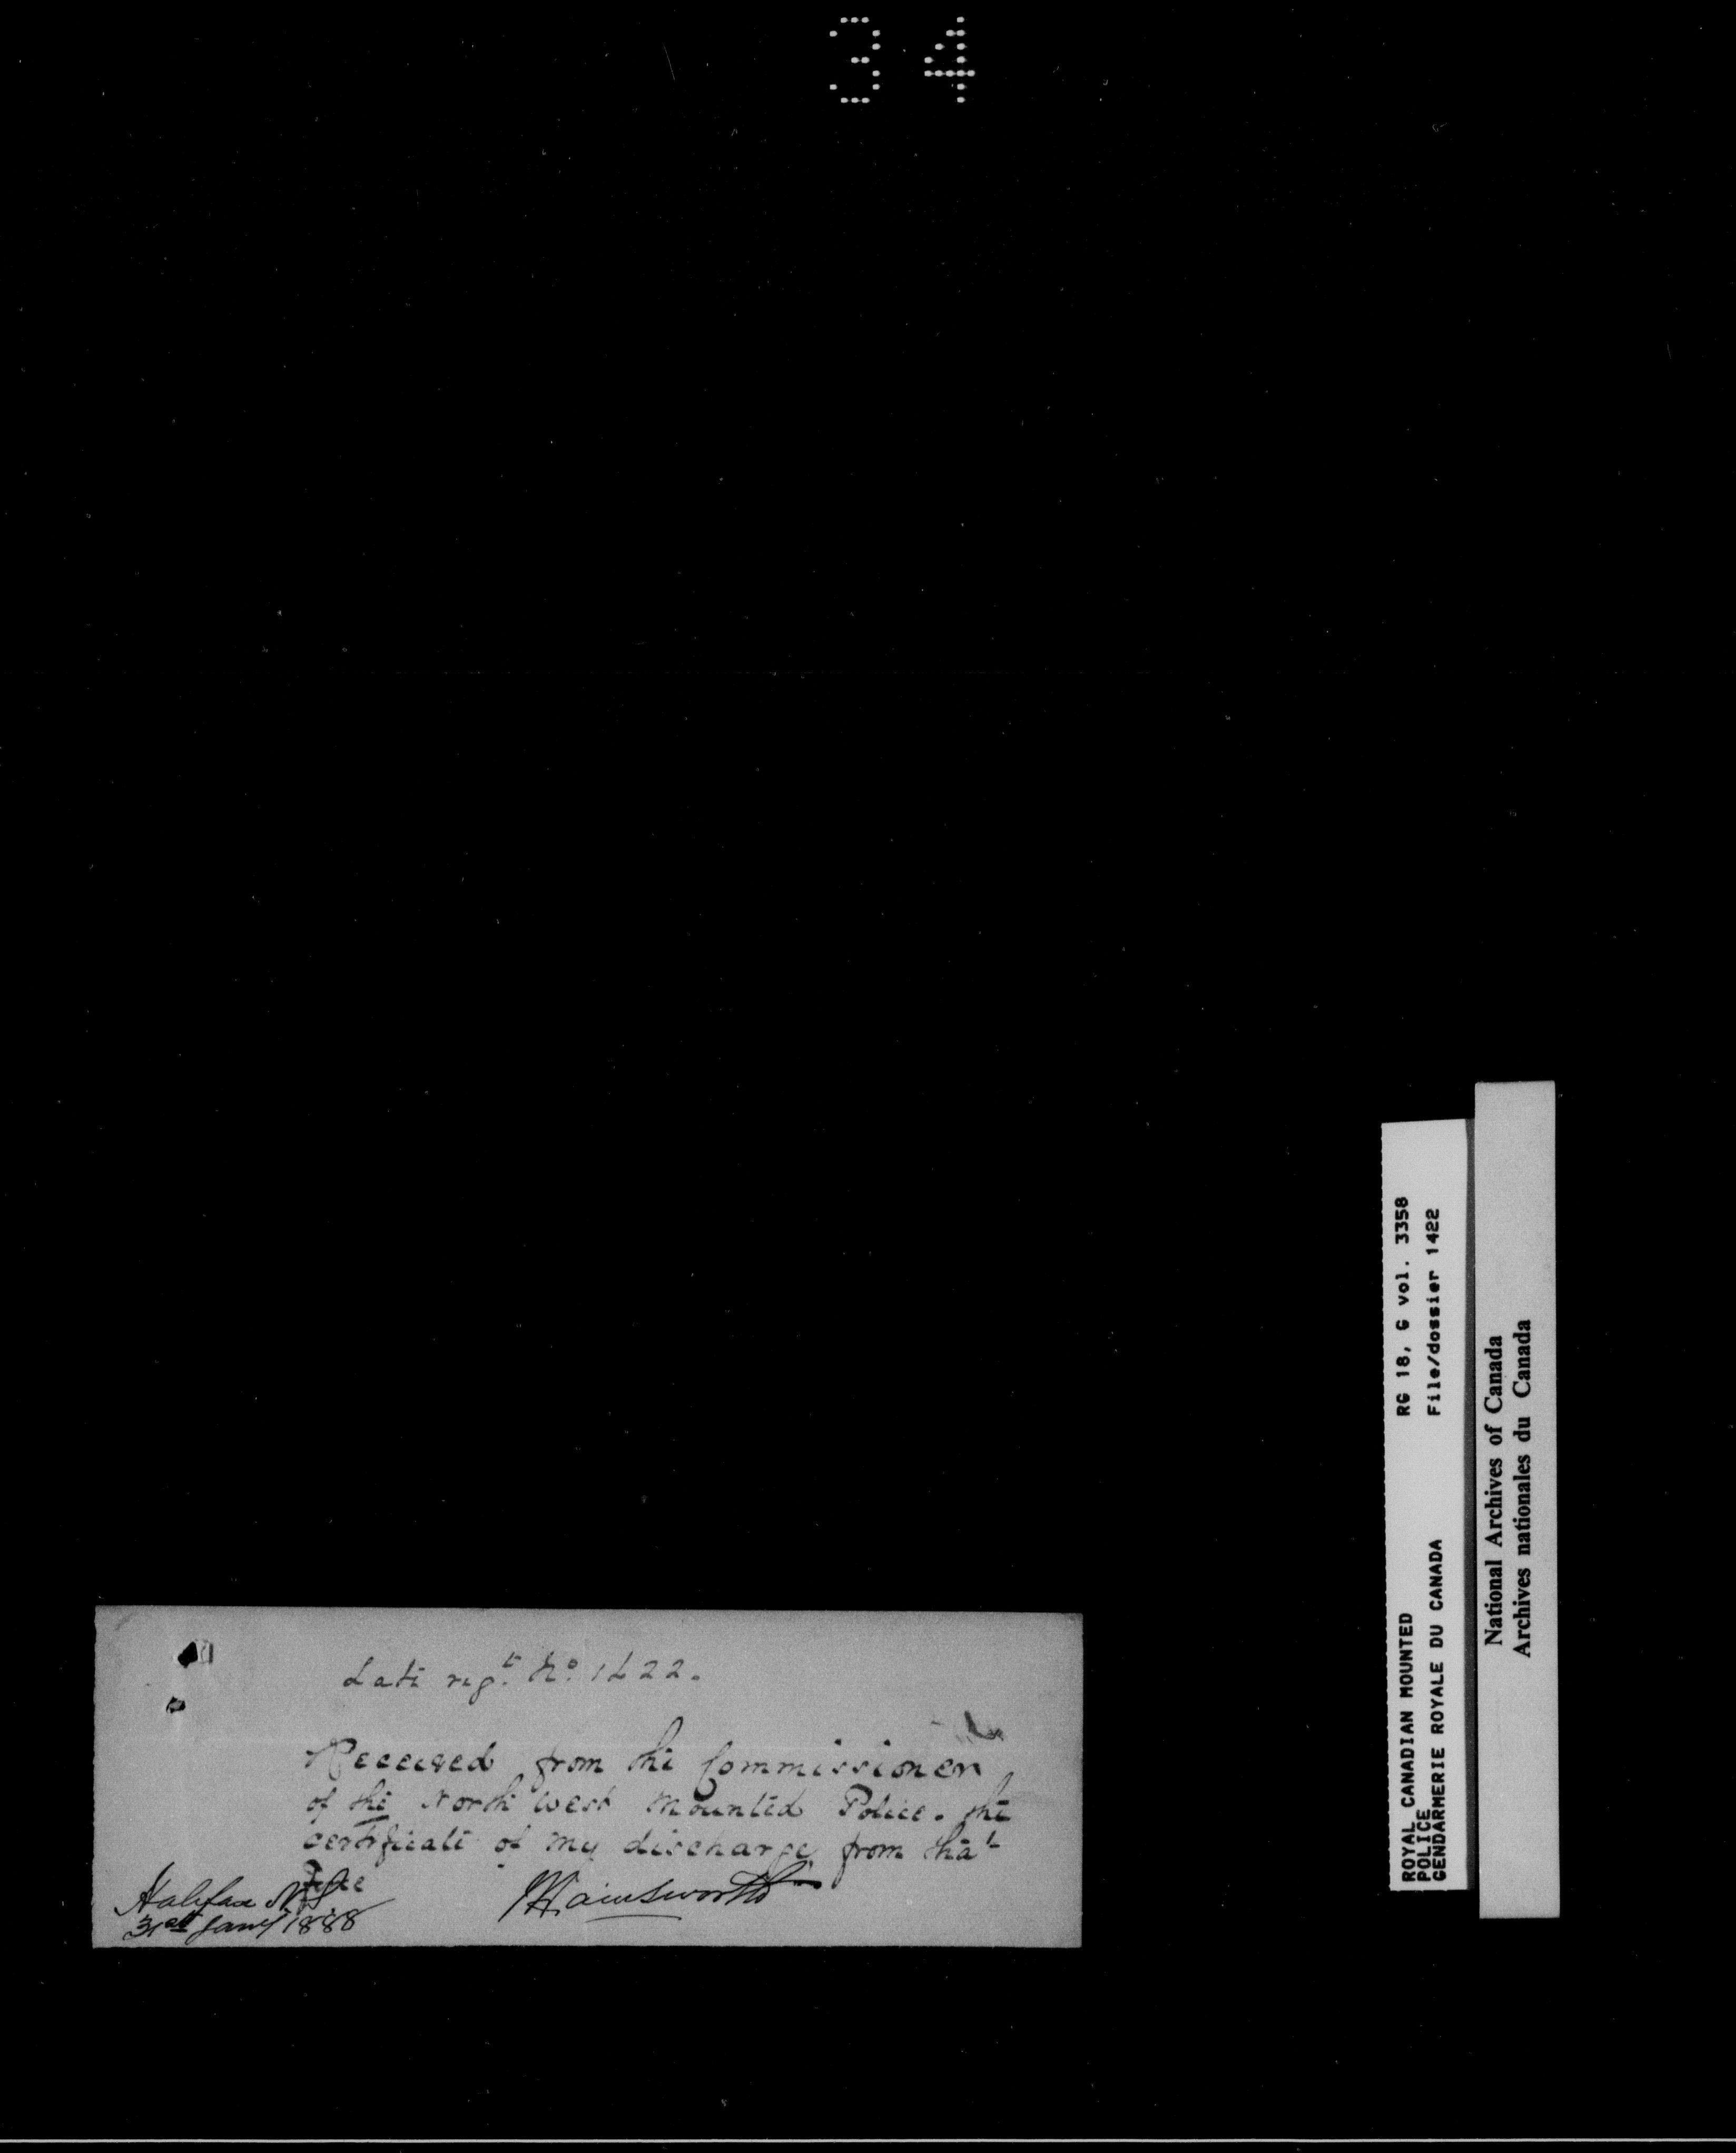 34
Late regt. No. 1422.
Received from the Commissioner
of the North West Mounted Police. the
certificate of my discharge from that
Force
Halifax NS
31st Jany 1888
Hainsworth
ROYAL CANADIAN MOUNTED POLICE
GENDARMERIE ROYALE DU CANADA
RG 18, G vol. 3358
File/dossier 1422
National Archives of Canada
Archives nationales du Canada